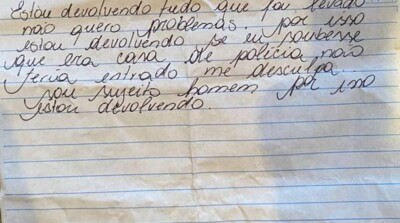 Estou devolvendo tudo que foi levado
não quero problemas. por isso
estou devolvendo se eu soubesse
que era casa de polícia não
teria entrado me desculpa...
sou sujeito homem por isso
estou devolvendo.